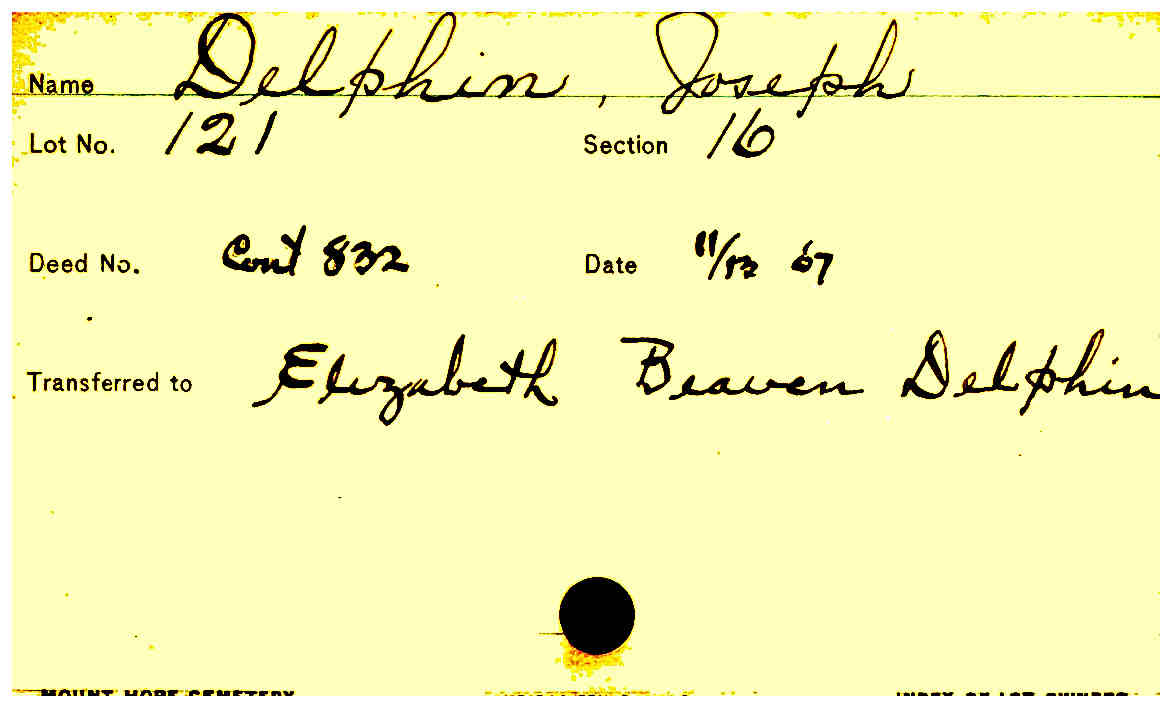 Name Delphin, Joseph
Lot No. 121 Section 16
Deed No. Cont 832 Date 11/13 67
Transferred to Elizabeth Beaven Delphin
MOUNT HOPE CEMETERY INDEX OF LOT OWNERS